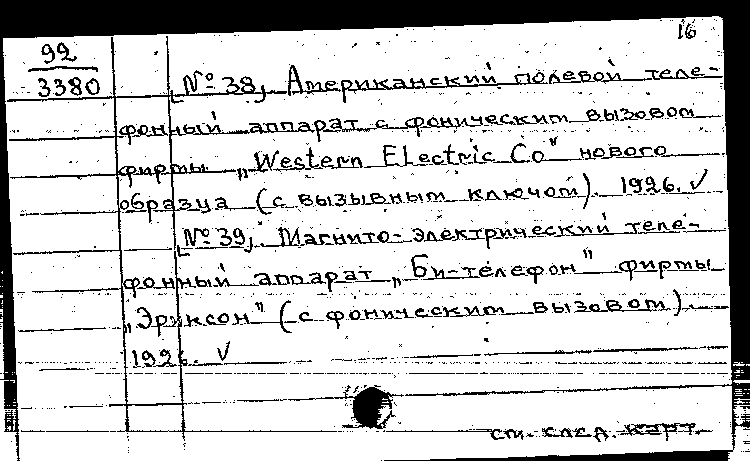 16
92
3380
[№ 38, Американский полевой теле-
фонный аппарат с фоническим вызовом
фирмы „Western Electric Co" нового
образца (с вызывным ключом). 1926. ✓
[№ 39, Магнито-электрический теле-
фонный аппарат „Би-телефон" фирмы
„Эриксон" (с фоническим вызовом).
1926. ✓
см. след. карт.